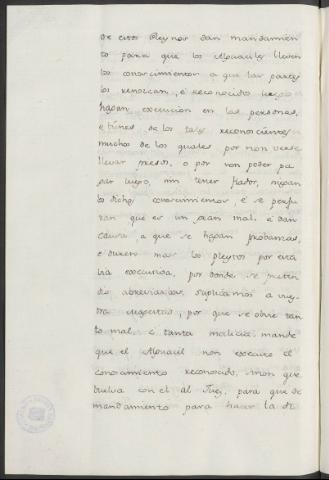 de estos Reynos dan mandamien
to para que los Alguaciles lleven
los conoscimientos a que las partes
los renozcan, é reconocidos luego
hagan execucion en las personas,
é bienes de los tales reconocientes
muchos de los quales por non verse
llevar presos, o por non poder pa
gar luego, nin tener fiador, niegan
los dichos conoscimientos, é se perju
ran que es un gran mal, é dan
causa, a que se hagan probanzas,
é duren mas los pleytos por esta
via executiva, por donde se
abreviarlos, suplicamos a vues
tra magestad, por que se obvie tan
to mal, é tanta malicia, mande
que el Alguacil non execute el
conocimiento reconocido, sinon que
buelva con él al Juez, para que dé
mandamiento para hacer la di